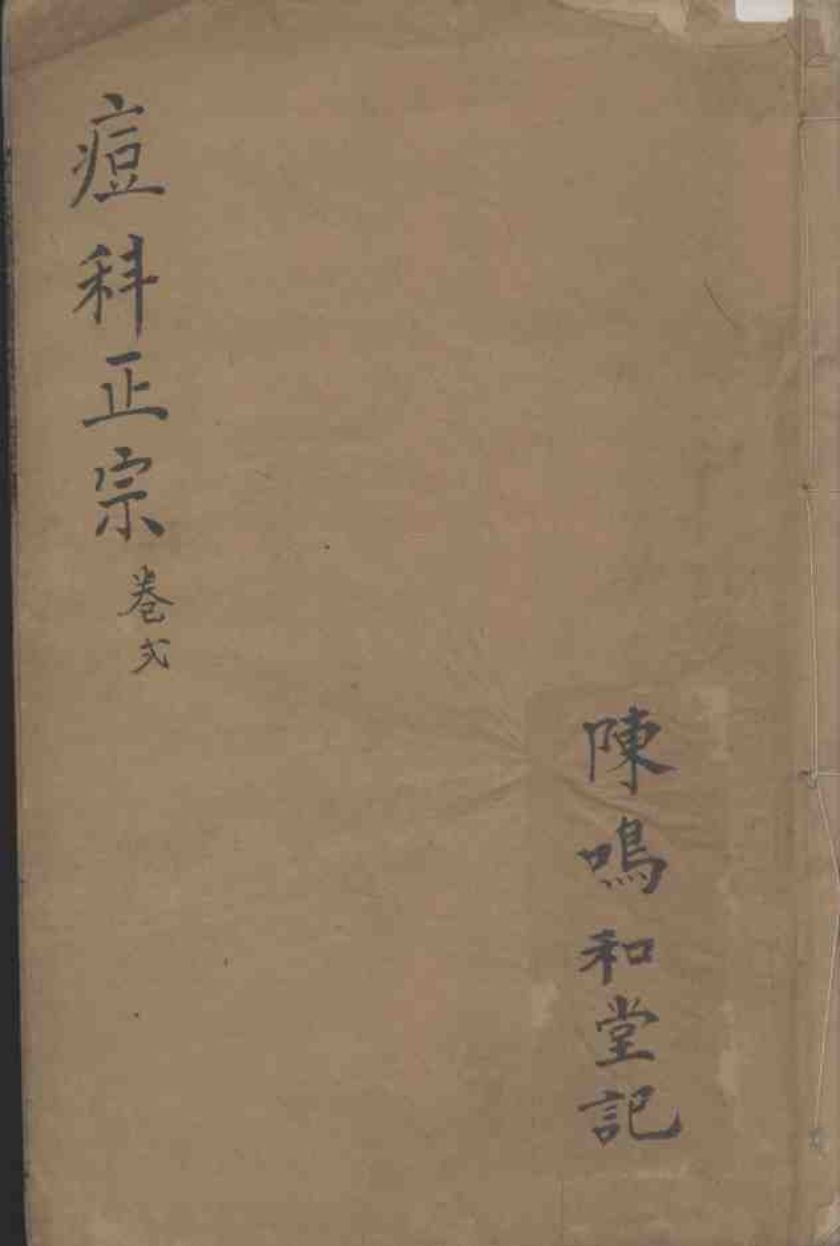 陳鳴和堂記
痘科正宗
卷弍